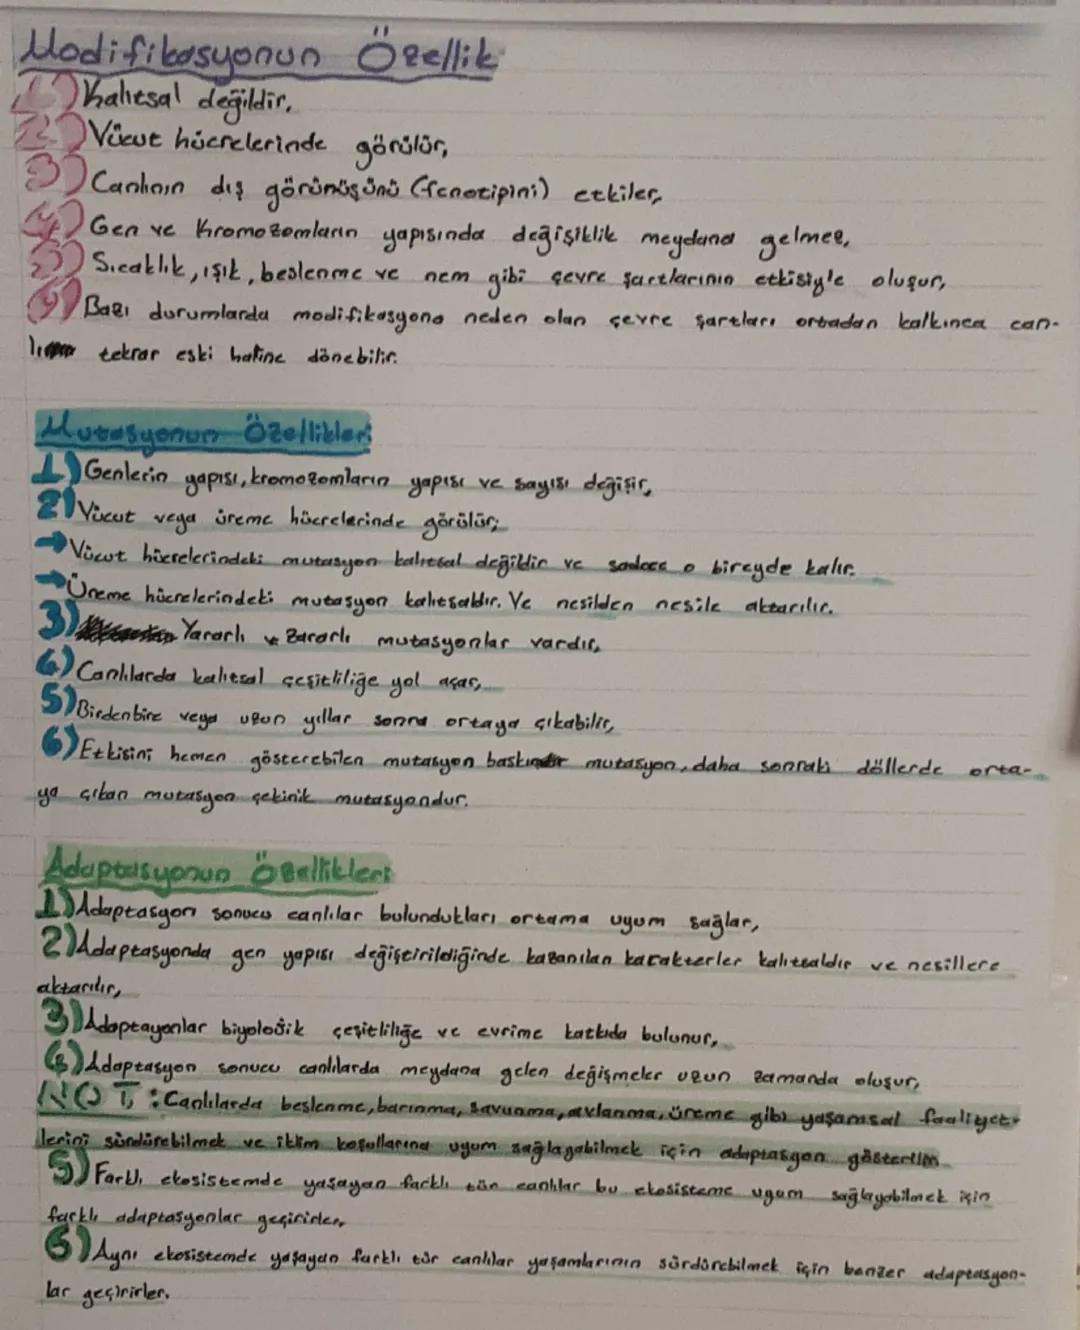 Modifikasyonun Özellik
1) Kalıtsal değildir,
2) Vücut hücrelerinde görülür,
3) Canlının dış görünüşünü (fenotipini) etkiler,
4) Gen ve Kromozomların yapısında değişiklik meydana gelmez,
5) Sıcaklık, ışık, beslenme ve nem gibi çevre şartlarının etkisiyle oluşur,
Bazı durumlarda modifikasyona neden olan çevre şartları ortadan kalkınca can-
lı tekrar eski haline dönebilir.
Mutasyonun Özellikleri
1) Genlerin yapısı, kromozomların yapısı ve sayısı değişir,
2) Vücut veya üreme hücrelerinde görülür;
→ Vücut hücrelerindeki mutasyon kalıtsal değildir ve sadece o bireyde kalır.
→ Üreme hücrelerindeki mutasyon kalıtsaldır. Ve nesilden nesile aktarılır.
3) Yararlı ve Zararlı mutasyonlar vardır,
4) Canlılarda kalıtsal çeşitliliğe yol açar,
5) Birdenbire veya uzun yıllar sonra ortaya çıkabilir,
6) Etkisini hemen gösterebilen mutasyon baskın mutasyon, daha sonraki döllerde orta-
ya çıkan mutasyon çekinik mutasyondur.
Adaptasyonun Özellikleri
1) Adaptasyon sonucu canlılar bulundukları ortama uyum sağlar,
2) Adaptasyonda gen yapısı değiştirildiğinde kazanılan karakterler kalıtsaldır ve nesillere
aktarılır,
3) Adaptayonlar biyolojik çeşitliliğe ve evrime katkıda bulunur,
4) Adaptasyon sonucu canlılarda meydana gelen değişmeler uzun zamanda oluşur,
NOT: Canlılarda beslenme, barınma, savunma, avlanma, üreme gibi yaşamsal faaliyet-
lerini sürdürebilmek ve iklim koşullarına uyum sağlayabilmek için adaptasyon gösterilm
5) Farklı ekosistemde yaşayan farklı tür canlılar bu ekosisteme uyum sağlayabilmek için
farklı adaptasyonlar geçirirler,
6) Aynı ekosistemde yaşayan farklı tür canlılar yaşamlarının sürdürebilmek için benzer adaptasyon-
lar geçirirler.